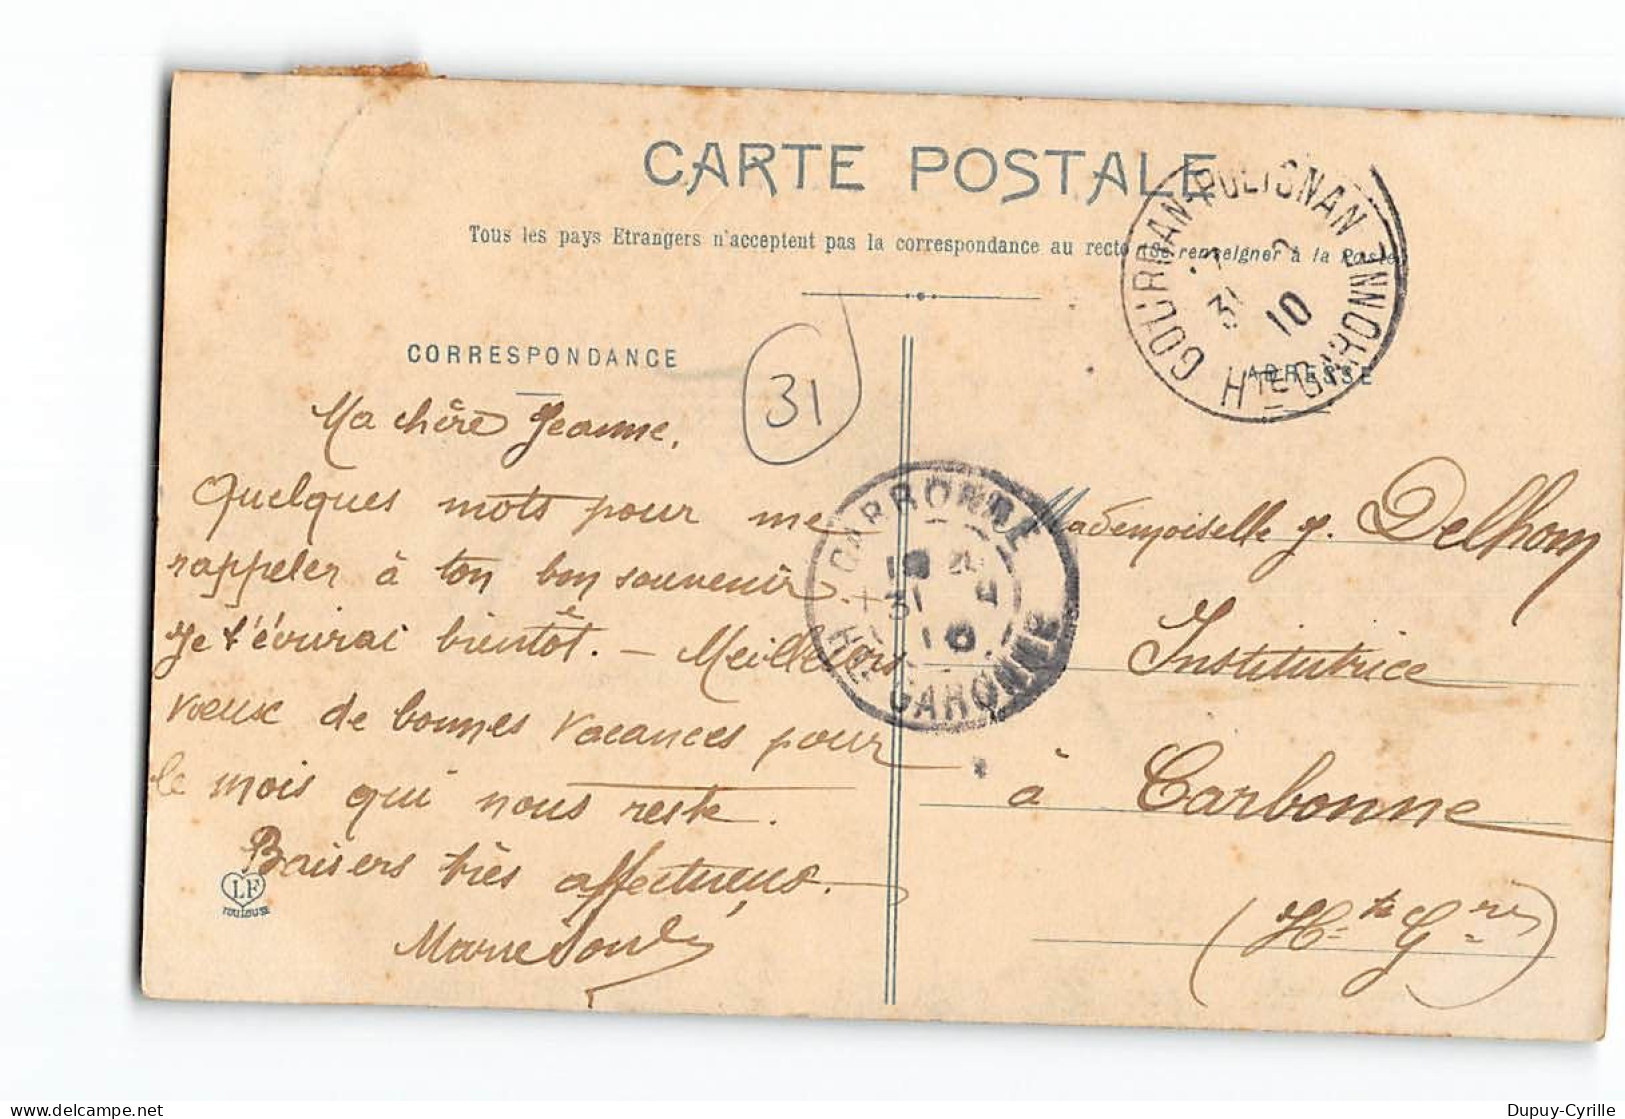 CARTE POSTALE
Tous les pays Etrangers n'acceptent pas la correspondance au recto (se renseigner à la Poste)
CORRESPONDANCE
ADRESSE
GOURDAN-POLIGNAN
Hte GARONNE
31
10
31
Ma chère Jeanne,
Quelques mots pour me
rappeler à ton bon souvenir.
Je t'écrirai bientôt. – Meilleurs
voeux de bonnes vacances pour
le mois qui nous reste.
Baisers très affectueux.
Marie
CARBONNE
31
10
Hte GARONNE
Mademoiselle J. Delhom
Institutrice
à Carbonne
(Hte Gne)
LF
TOULOUSE
delcampe.net
Dupuy-Cyrille